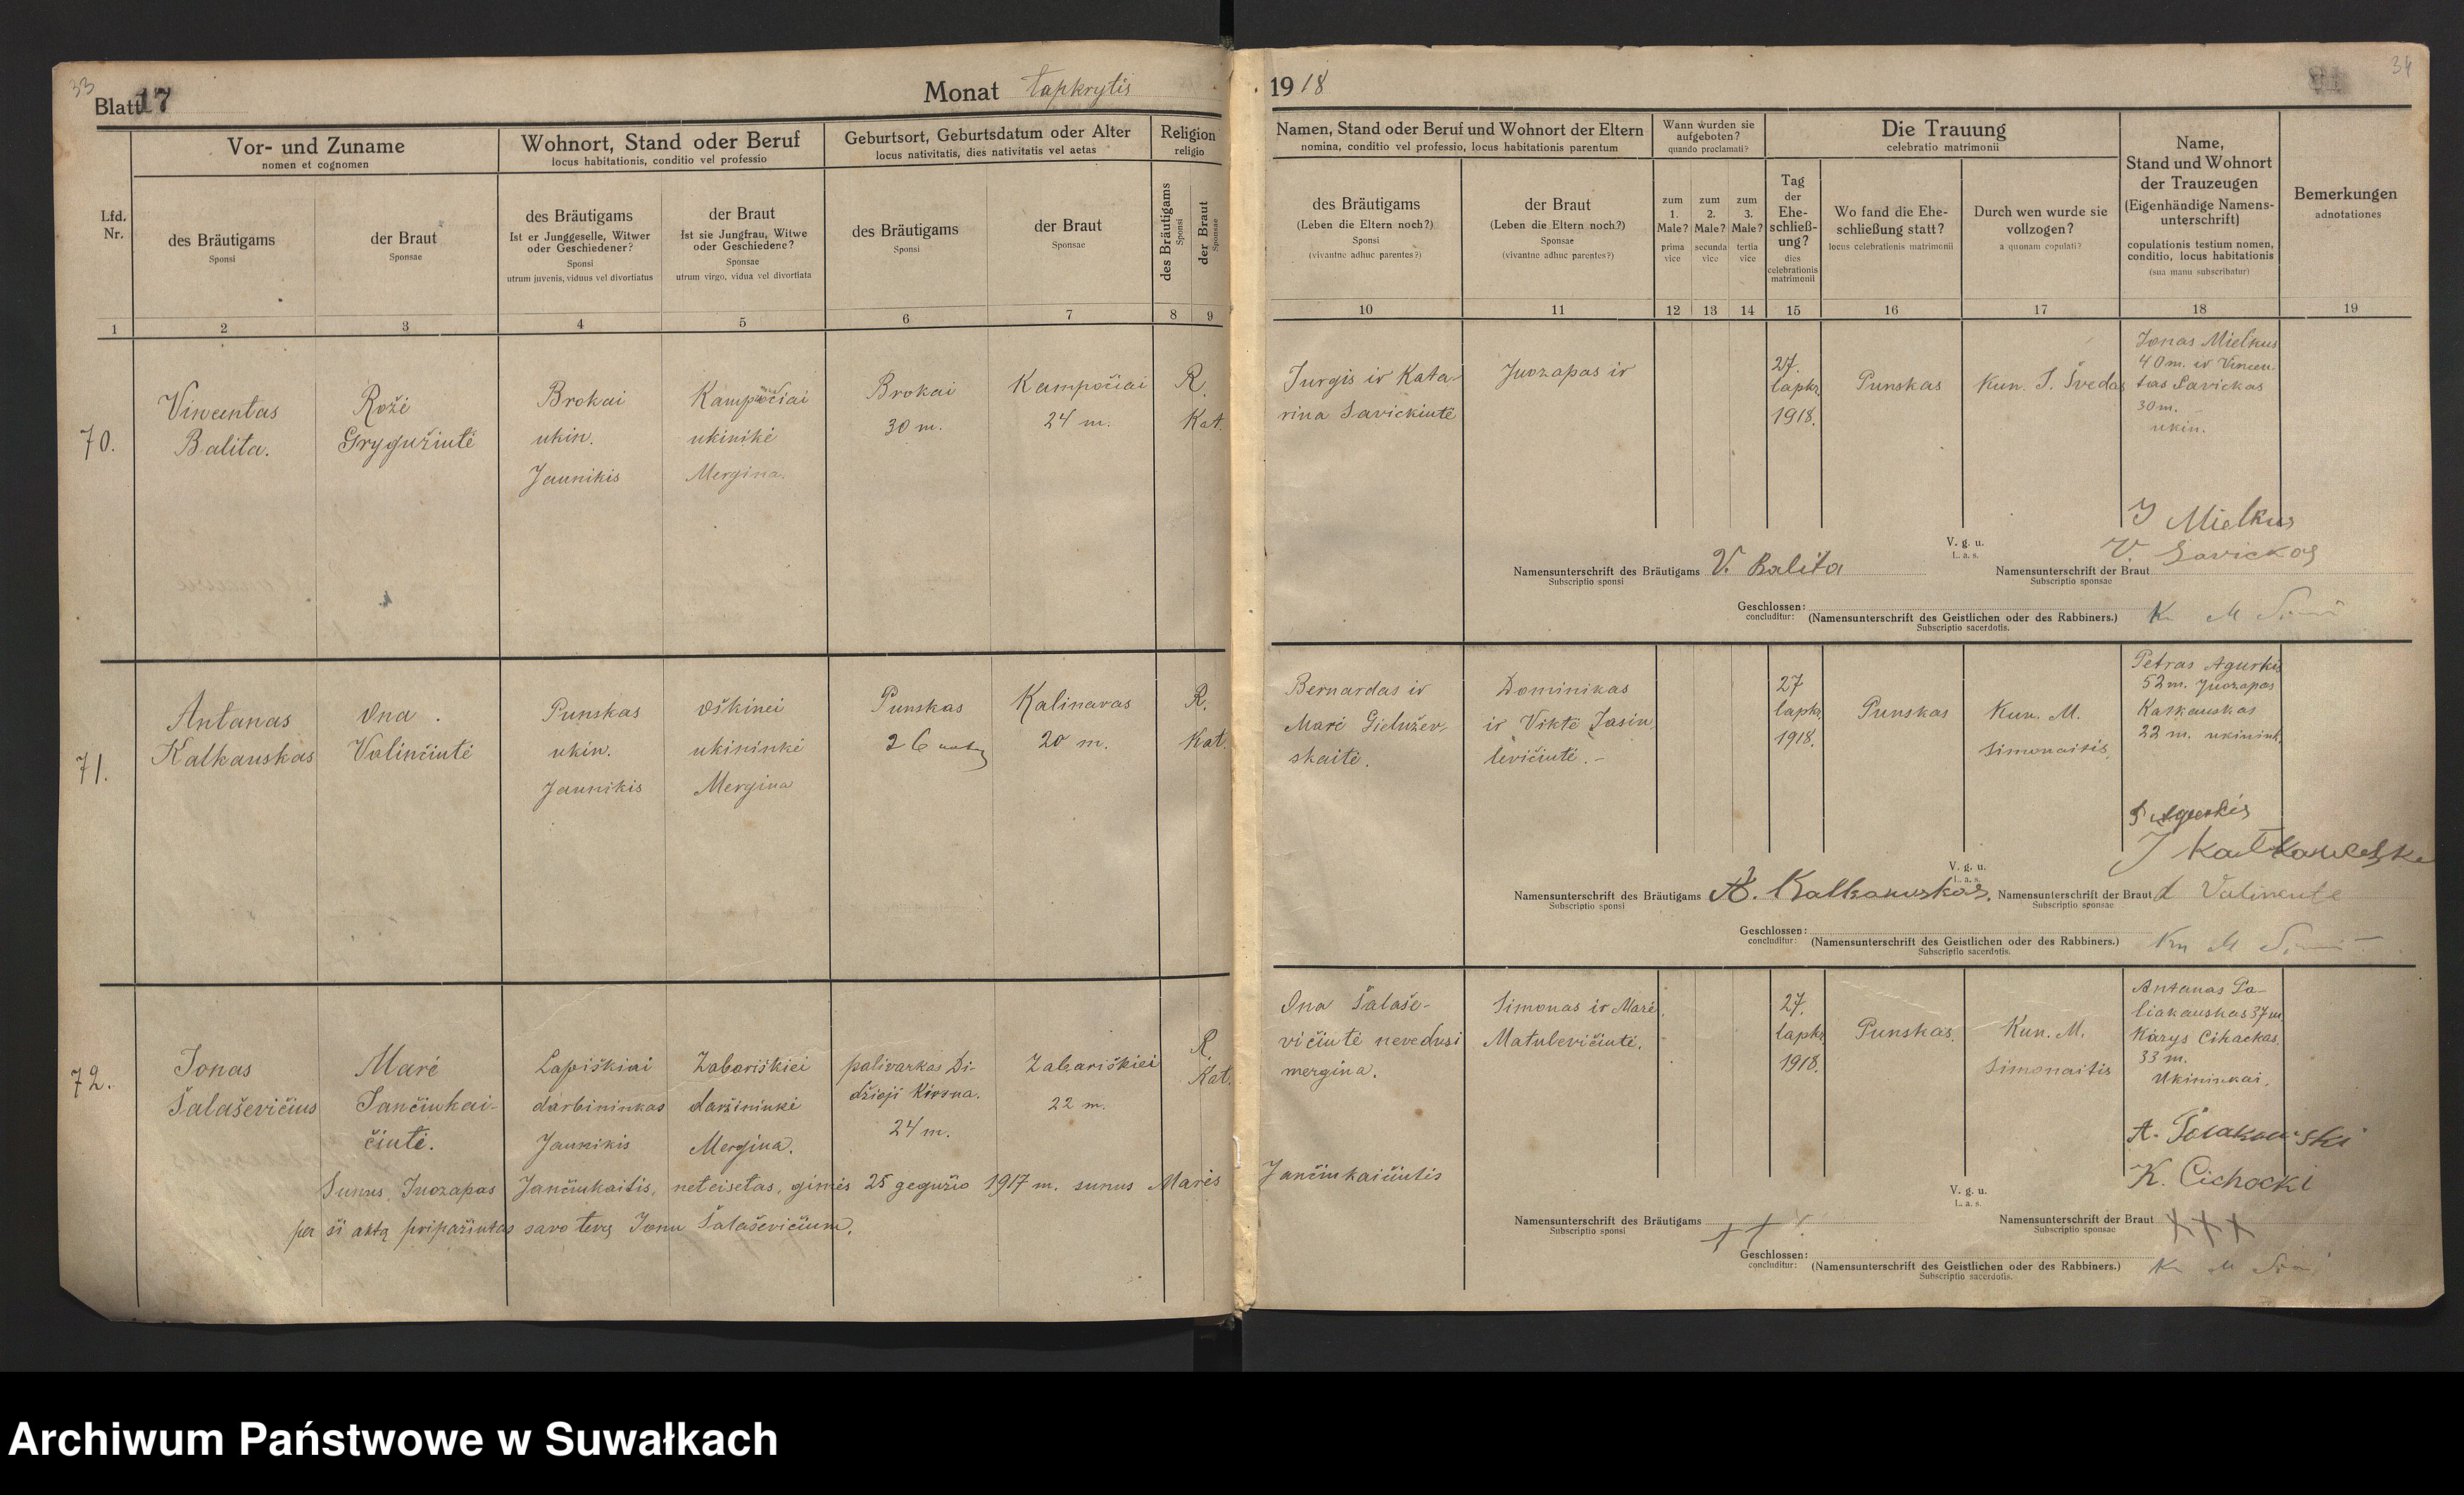 33
Blatt 17
Monat Lapkrytis
Vor- und Zuname
nomen et cognomen
Wohnort, Stand oder Beruf
locus habitationis, conditio vel professio
Geburtsort, Geburtsdatum oder Alter
locus nativitatis, dies nativitatis vel aetas
Religion
religio
Lfd.
Nr.
des Bräutigams
Sponsi
der Braut
Sponsae
des Bräutigams
Ist er Junggeselle, Witwer
oder Geschiedener?
Sponsi
utrum juvenis, viduus vel divortiatus
der Braut
Ist sie Jungfrau, Witwe
oder Geschiedene?
Sponsae
utrum virgo, vidua vel divortiata
des Bräutigams
Sponsi
der Braut
Sponsae
des Bräutigams
Sponsi
der Braut
Sponsae
1 2 3 4 5 6 7 8 9
70.
Vincentas
Balita.
Rožė
Grygužiutė
Brokai
ukin.
Jaunikis
Kampočiai
ukinikė
Mergina.
Brokai
30 m.
Kampočiai
24 m.
R.
Kat.
71.
Antanas
Kalkauskas
Ona.
Valinčiutė
Punskas
ukin.
Jaunikis
Oškinei
ukininkė
Mergina
Punskas
26
Kalinavas
20 m.
R.
Kat.
72.
Jonas
Šalaševičius
Marė
Jančiukai-
čiutė.
Lapiškiai
darbininkas
Jaunikis
Zabariškiei
daržininkė
Mergina.
palivarkas Di-
džioji Kirsna.
24 m.
Zabariškiei
22 m.
R.
Kat.
Sunus Juozapas Jančiukaitis, neteisetas, gimės 25 gegužio 1917 m. sunus Marės
per ši aktą pripažintas savo tevų Jonu Šalaševičium.
1918
34
Namen, Stand oder Beruf und Wohnort der Eltern
nomina, conditio vel professio, locus habitationis parentum
Wann wurden sie
aufgeboten?
quando proclamati?
Die Trauung
celebratio matrimonii
Name,
Stand und Wohnort
der Trauzeugen
(Eigenhändige Namens-
unterschrift)
copulationis testium nomen,
conditio, locus habitationis
(sua manu subscribatur)
Bemerkungen
adnotationes
des Bräutigams
(Leben die Eltern noch?)
Sponsi
(vivantne adhuc parentes?)
der Braut
(Leben die Eltern noch?)
Sponsae
(vivantne adhuc parentes?)
zum
1.
Male?
prima
vice
zum
2.
Male?
secunda
vice
zum
3.
Male?
tertia
vice
Tag
der
Ehe-
schließ-
ung?
dies
celebrationis
matrimonii
Wo fand die Ehe-
schließung statt?
locus celebrationis matrimonii
Durch wen wurde sie
vollzogen?
a quonam copulati?
10 11 12 13 14 15 16 17 18 19
Jurgis ir Kata-
rina Savickiutė
Juozapas ir
27.
lapkr.
1918.
Punskas
Kun. J. Švedas
Jonas Mielkus
40 m. ir Vincen-
tas Savickas
30 m.
ukin.
J Mielkus
V. Savickas
V. g. u.
L. a. s.
Namensunterschrift des Bräutigams V. Balita
Subscriptio sponsi
Namensunterschrift der Braut
Subscriptio sponsae
Geschlossen:
concluditur:
(Namensunterschrift des Geistlichen oder des Rabbiners.)
Subscriptio sacerdotis.
Bernardas ir
Marė Gielužev-
skaitė.
Dominikas
ir Viktė Jasin
levičiutė.-
27
lapkr.
1918.
Punskas
Kun. M.
Simonaitis.
Petras Agurkis
52 m. Juozapas
Kalkauskas
22 m. ukinink.
P Agurkis
V. g. u.
L. a. s.
Namensunterschrift des Bräutigams A. Kalkauskas.
Subscriptio sponsi
Namensunterschrift der Braut
Subscriptio sponsae
Geschlossen:
concluditur:
(Namensunterschrift des Geistlichen oder des Rabbiners.)
Subscriptio sacerdotis.
Ona Šalaše-
vičiutė nevedusi
mergina.
Simonas ir Marė
Matulevičiutė.
27.
lapkr.
1918.
Punskas.
Kun. M.
Simonaitis
Antanas Pa-
liakauskas 37 m
Karys Cihackas.
33 m.
Ukininkai.
K. Cichocki
Jančiukaičiutis
V. g. u.
L. a. s.
Namensunterschrift des Bräutigams
Subscriptio sponsi
Namensunterschrift der Braut XXX
Subscriptio sponsae
Geschlossen:
concluditur:
(Namensunterschrift des Geistlichen oder des Rabbiners.)
Subscriptio sacerdotis.
Archiwum Państwowe w Suwałkach